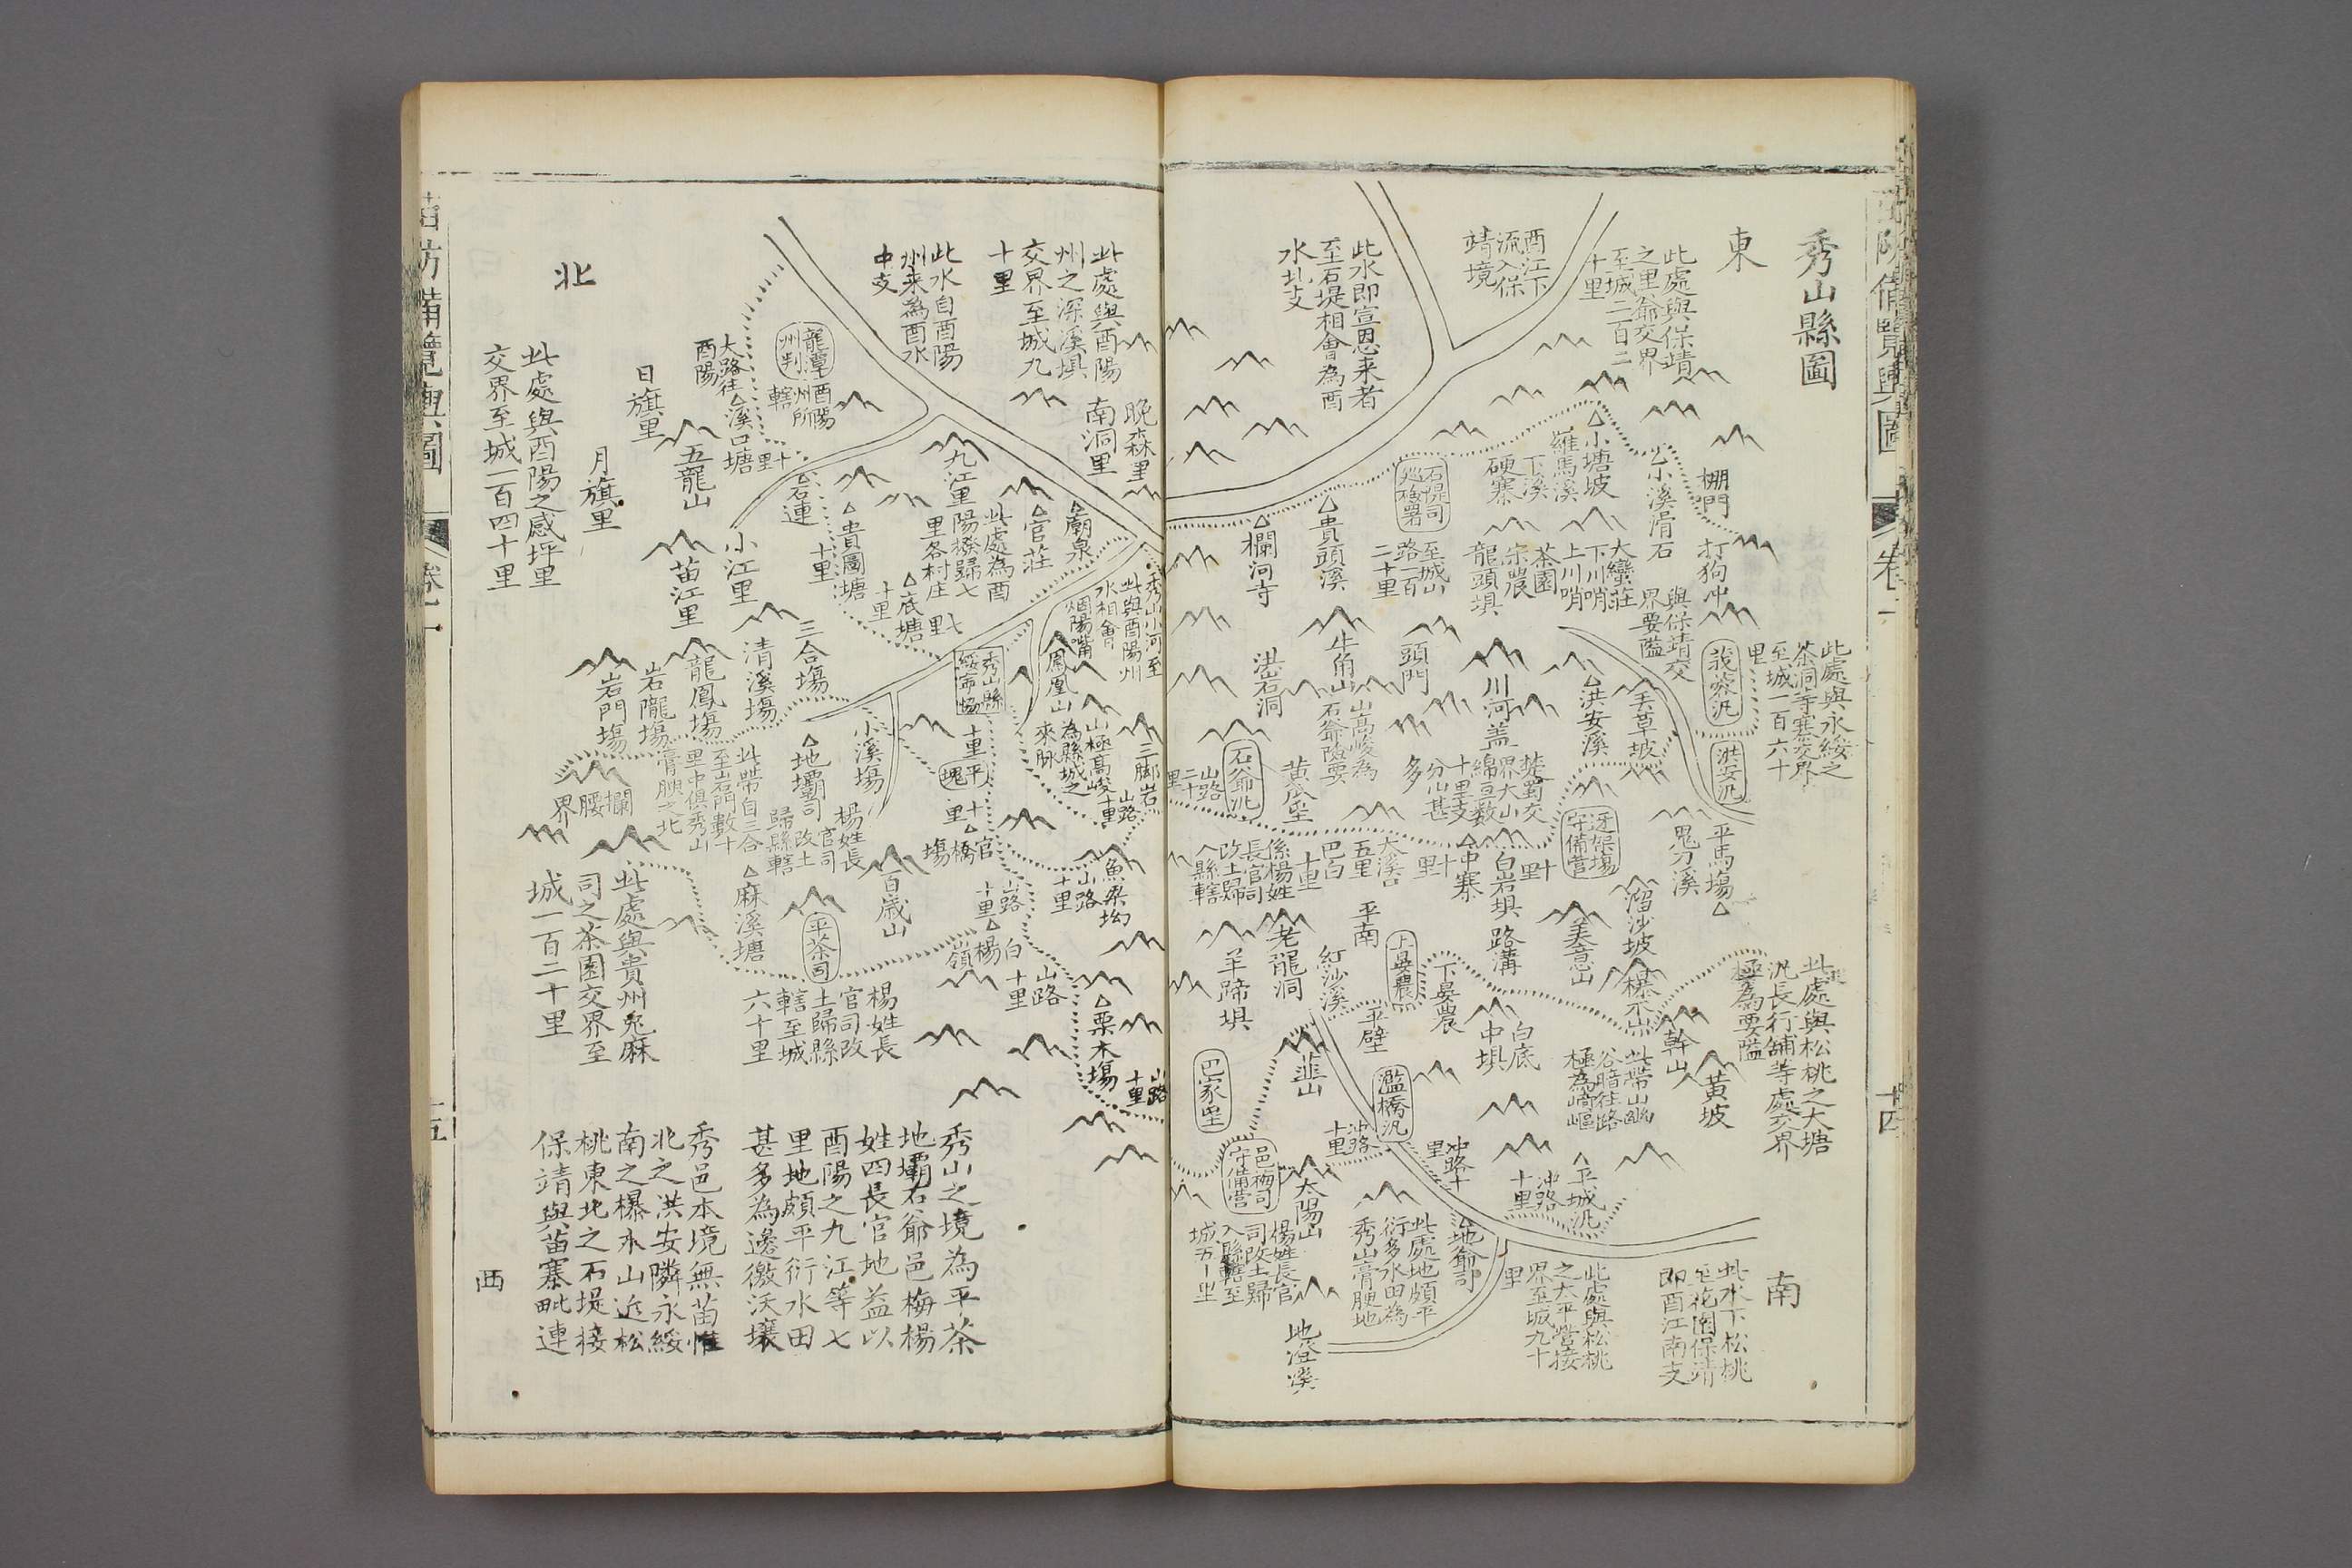 秀山縣圖
東
此處與保靖
之里爺交界
至城二百二
十里
酉江下
流入保
靖境
此水即宣恩来者
至石堤相會為酉
水北支
棚門
小溪滑石
小塘坡
羅馬溪
下溪
硬寨
石堤司
巡檢署
貴頭溪
欄河寺
打狗冲
與保靖交
界要隘
大蠻莊
下川哨
上川哨
茶園
宋農
龍頭塤
至城山
路一百
二十里
此處與永綏之
茶洞等寨交界
至城一百六十
里
洪安汛
芙草坡
洪安溪
川河盖
頭門
牛角山
山高峻為
石爺險要
洪石洞
楚蜀交
界大山
綿亘數
十里支
分山甚
多
黄瓜埡
石爺汛
山路
二十
里
平馬塲
鬼刀溪
迓架塲
守備營
十里
白岩塤
中寨
十里
大溪口
五里
巴白
十里
係楊姓
長官司
改土歸
入縣轄
溜沙坡
美意山
路溝
平南
上晏農
下晏農
紅沙溪
老龍洞
羊蹄塤
此處與松桃之大塘
汛長行舖等處交界
極為要隘
㯷木山
幹山
黄坡
此帶山幽
谷暗往路
極為崎嶇
白底
中塤
平壁
韭山
巴家垔
濫橋汛
冲路十
里
冲路
十里
平城汛
冲路
十里
邑梅司
守備營
太陽山
楊姓長官
司改土歸
入縣轄至
城五十里
此處地頗平
衍多水田為
秀山膏腴地
地爺司
此處與松桃
之太平營接
界至城九十
里
地澄溪
南
此水下松桃
至花園保靖
即酉江南支
此處與酉陽
州之深溪塤
交界至城九
十里
此水自酉陽
州来為酉水
中支
龍潭
州判
酉陽
州所
轄
大路往
酉陽
溪口塘
十里
北
日旗里
月旗里
此處與酉陽之感坪里
交界至城一百四十里
五龍山
苗江里
小江里
晚森里
南洞里
九江里
此處為酉
陽撥歸七
里各村庄
廟泉
官莊
岩連
十里
貴圖塘
十里
底塘
七里
秀山小河至
此與酉陽州
水相會
烟陽嘴
鳳凰山
山極高峻
為縣城之
來脉
秀山縣
綏甯協
三合塲
清溪塲
龍鳳塲
岩隴塲
岩門塲
小溪塲
地壩司
楊姓長
官司
改土
歸縣轄
此帶自三合
至岩門數十
里中俱秀山
膏腴之北
攔腰界
十里
平塊
十里
官橋塲
三脚岩
山路
十里
魚梁坳
山路
十里
山路
十里
百歲山
麻溪塘
平茶司
楊姓長
官司改
土歸縣
轄至城
六十里
白楊嶺
山路
十里
栗木塲
山路
十里
此處與貴州兔麻
司之茶園交界至
城一百二十里
秀山之境為平茶
地壩石爺邑梅楊
姓四長官地益以
酉陽之九江等七
里地頗平衍水田
甚多為邊徼沃壤
秀邑本境無苗惟
北之洪安隣永綏
南之㯷木山近松
桃東北之石堤接
保靖與苗寨毗連
西
苗防備覽輿圖
卷一
十四
十五